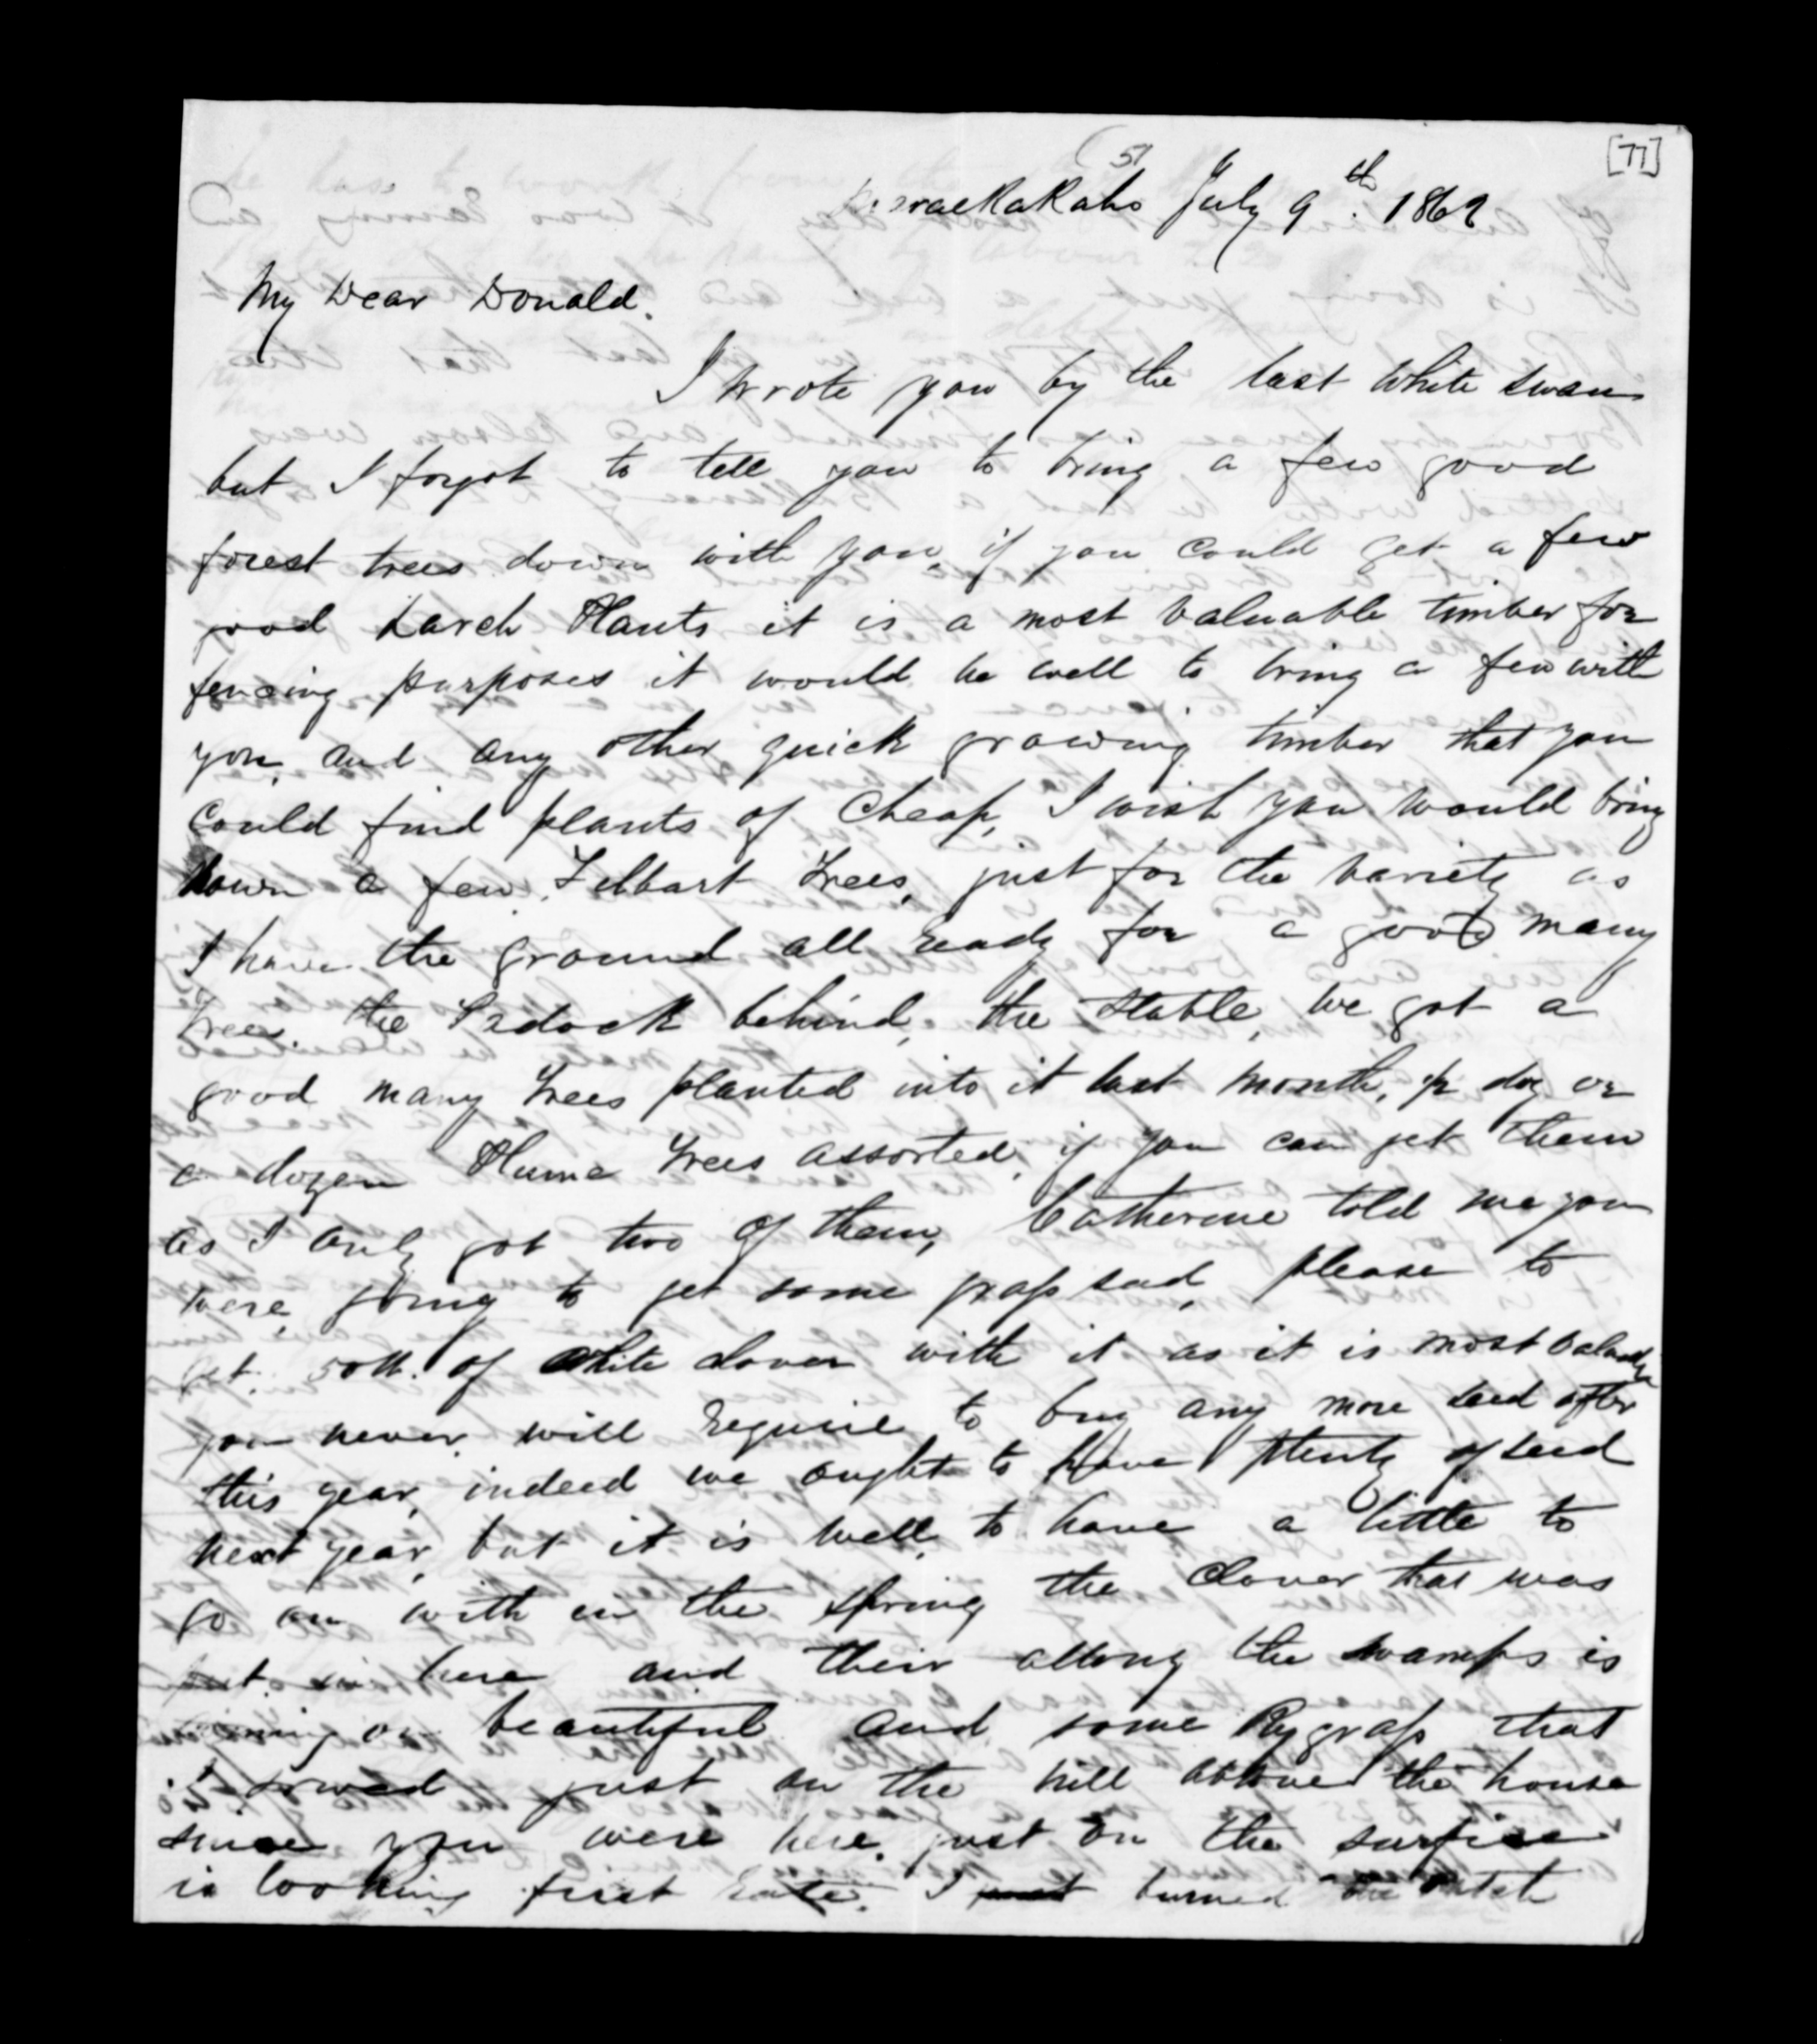 [77]
51
MaraeKaKaho July 9th. 1862
My Dear Donald.
I wrote you by the last White Swan
but I forgot to tell you to bring a few good
forest trees down with you, if you could get a few
good Larch Plants it is a most valuable timber for
fencing purposes it would be well to bring a few with
you, and any other quick growing timber that you
could find plants of cheap, I wish you would bring
down a few Filbart Trees, just for the variety as
I have the ground all ready for a good many
Trees. the Padock behind, the Stable, we got a
good many Trees planted into it last month, 1/2 doz or
a dozen Plume Trees assorted, if you can get them
as I only got two of them, Catherine told me you
were going to get some grass seed, please to
get. 50 lb. of White clover with it as it is most valuable
you never will require to buy any more seed after
this year, indeed we ought to have plenty of seed
next year, but it is well to have a little to
go on with in the spring the Clover that was
put in here and their allong the swamps is
coming on beautiful and some Rygrass that
I sowed just on the hill above the house
since you were here. just on the surfise
is looking first rate. I burned the Patch